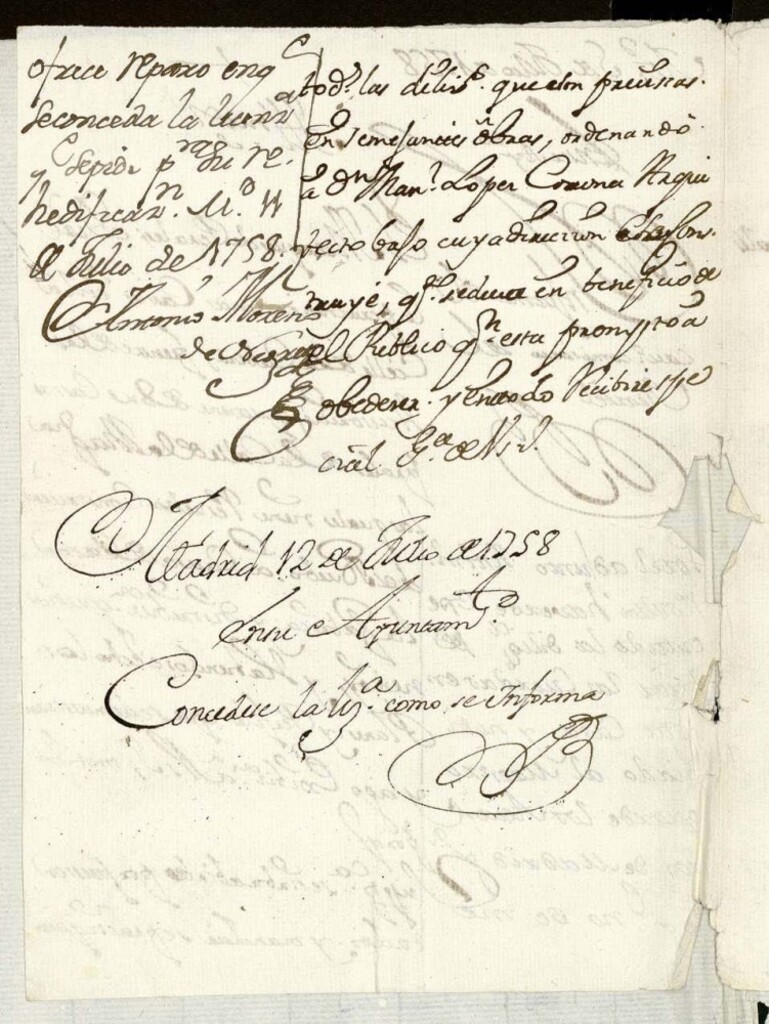 ofrece reparo en q.e
se conceda la licencia
q.e se pide p.a su re-
hedificaz.n M.d 11
de Julio de 1758.
Antonio Moreno
de
tod.s las dilix.s que son precissas
en semejantes obras, ordenando
a Dn Man.l Lopez Corona Arqui
tecto bajo cuya direccion
truye, q.e en beneficio de
el Publico q.n esta prompto a
obedecer y en todo Recibire spe
cial G.a de V.S.
Madrid 12 de Julio de 1758
En su Ayuntam.to
Concedese la liz.a como se Informa